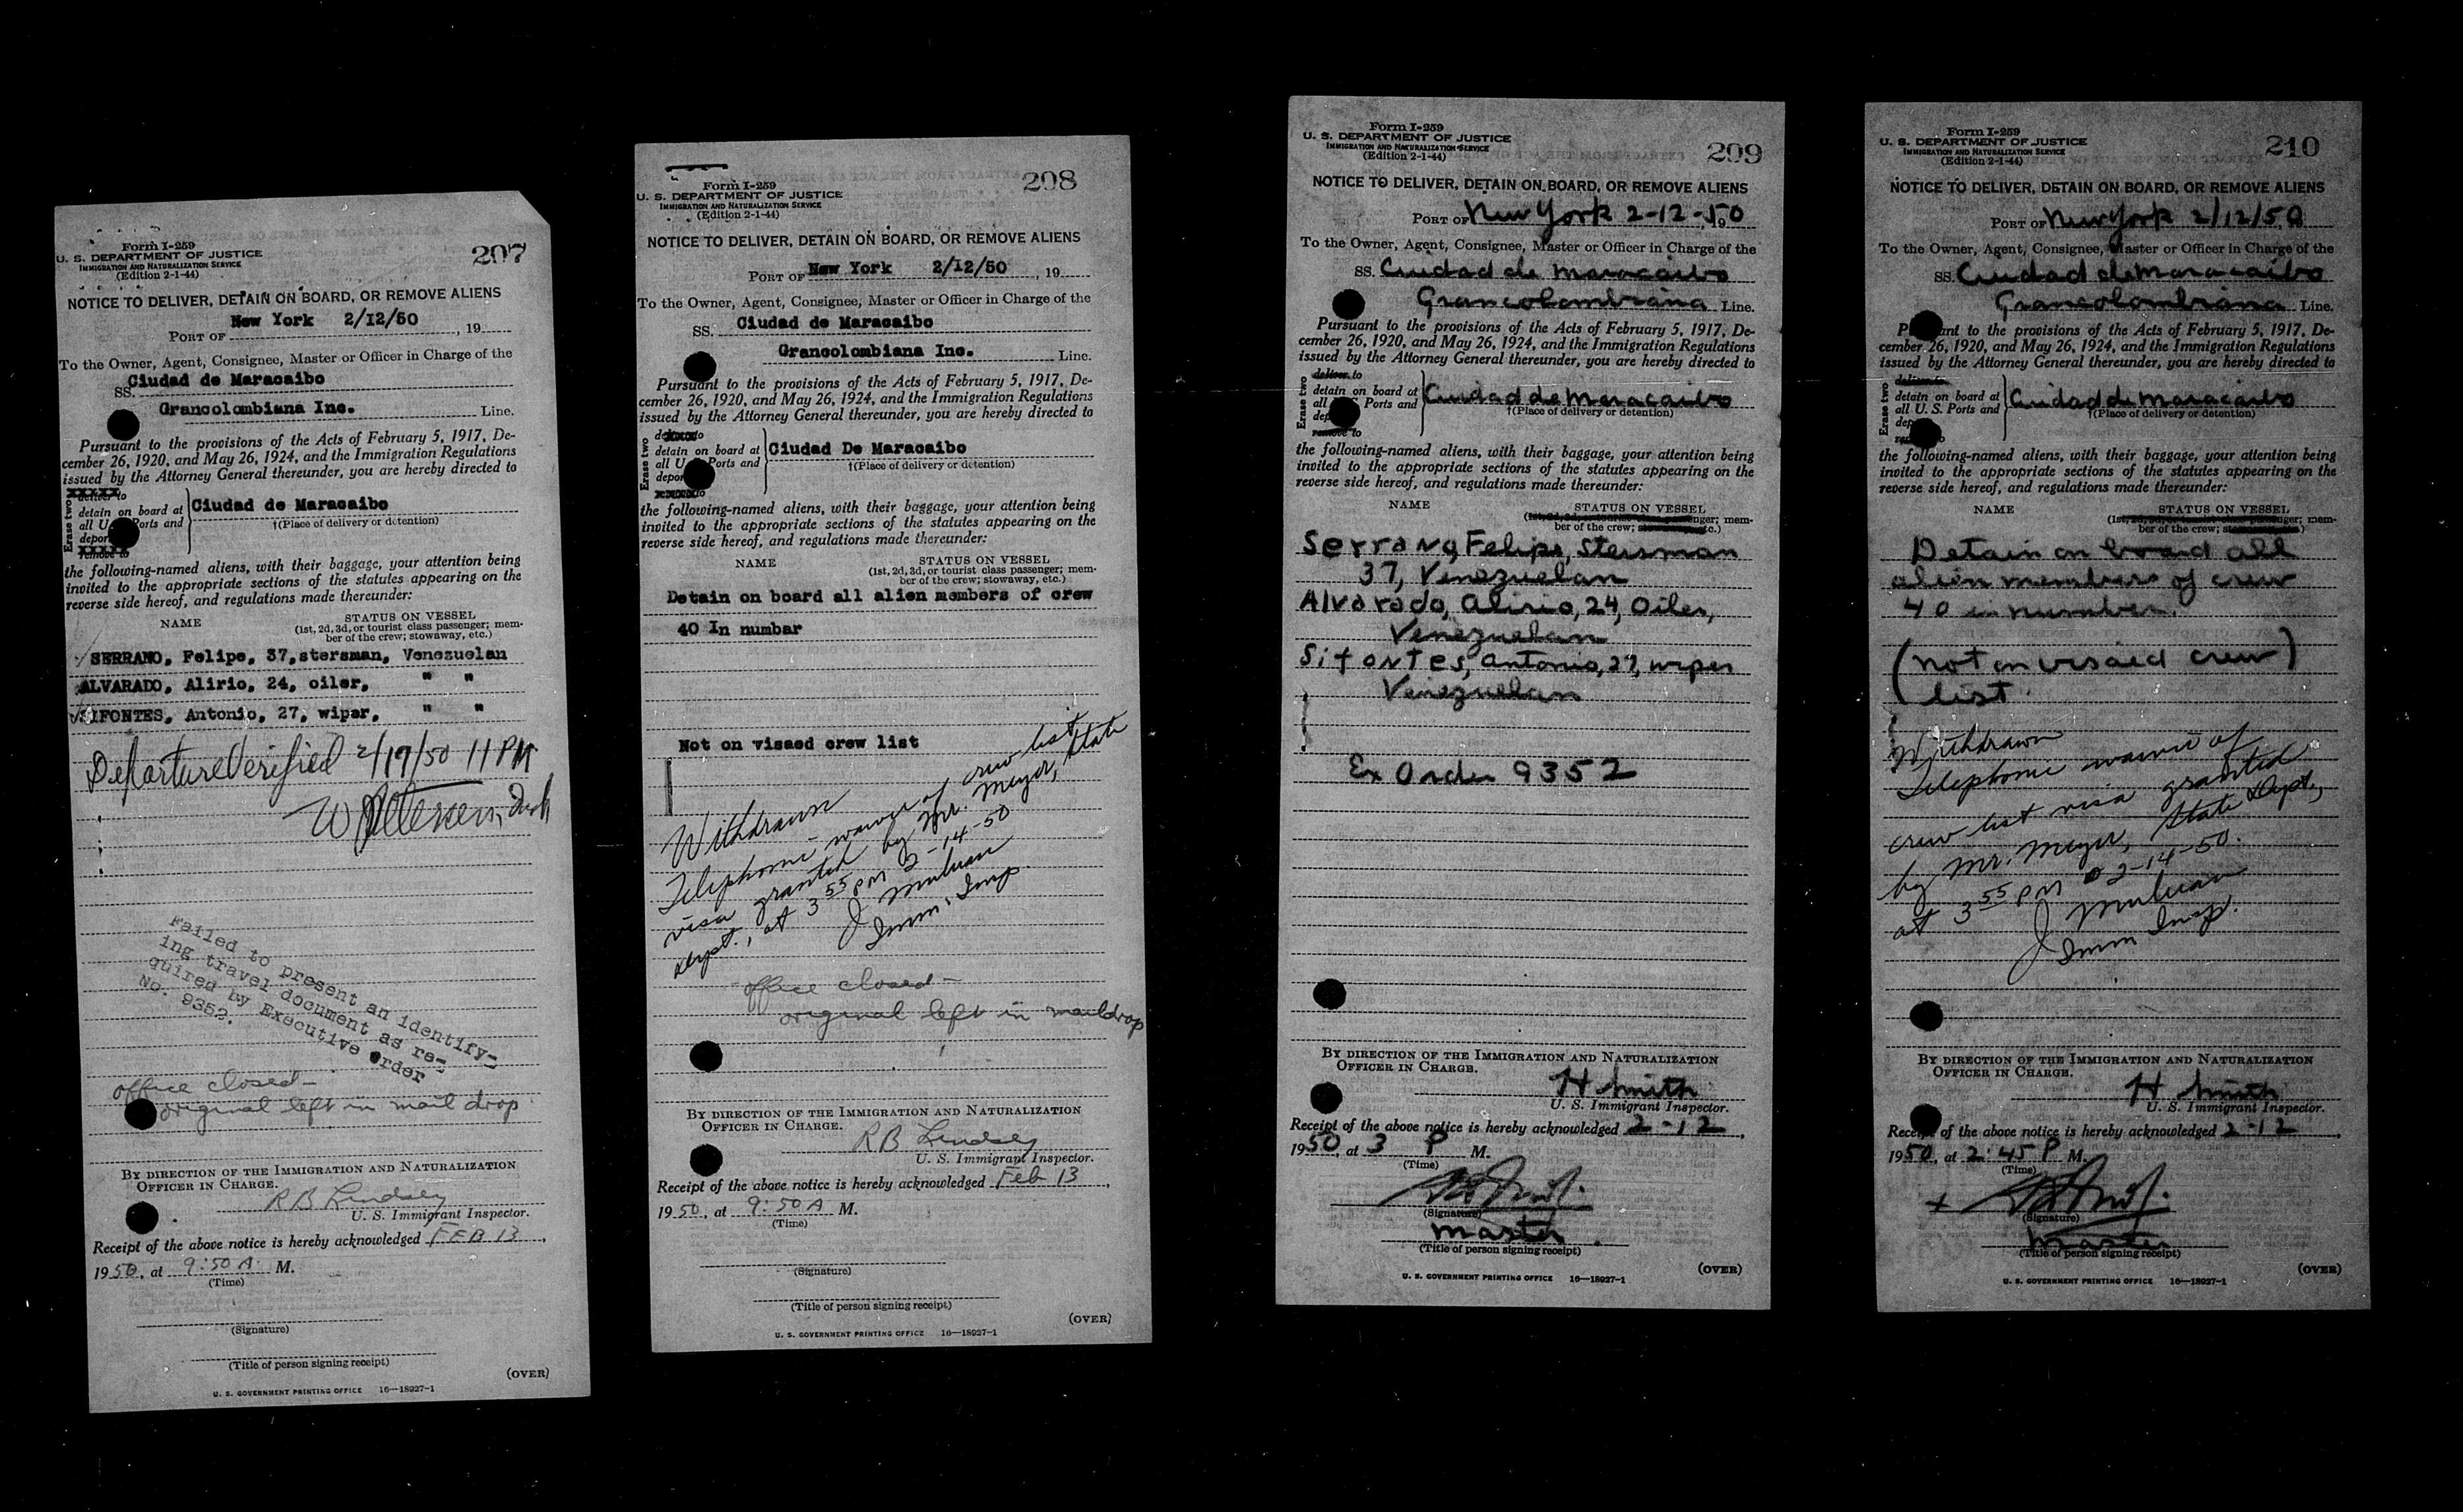 Form I-259
U. S. DEPARTMENT OF JUSTICE
IMMIGRATION AND NATURALIZATION SERVICE
(Edition 2-1-44)
207
NOTICE TO DELIVER, DETAIN ON BOARD, OR REMOVE ALIENS
PORT OF New York 2/12/50, 19
To the Owner, Agent, Consignee, Master or Officer in Charge of the
SS. Ciudad de Maracaibo
Grancolombiana Inc. Line.
Pursuant to the provisions of the Acts of February 5, 1917, De-
cember 26, 1920, and May 26, 1924, and the Immigration Regulations
issued by the Attorney General thereunder, you are hereby directed to
Erase two
deliver to
detain on board at
all U. Ports and
depor
remove to
Ciudad de Maracaibo
†(Place of delivery or detention)
the following-named aliens, with their baggage, your attention being
invited to the appropriate sections of the statutes appearing on the
reverse side hereof, and regulations made thereunder:
NAME STATUS ON VESSEL
(1st, 2d, 3d, or tourist class passenger; mem-
ber of the crew; stowaway, etc.)
SERRANO, Felipe, 37, stersman, Venezuelan
ALVARADO, Alirio, 24, oiler, " "
SIFONTES, Antonio, 27, wiper, " "
Departure Verified 2/19/50 11 PM
Failed to present an identify-
ing travel document as re-
quired by Executive Order
No. 9352.
office closed-
original left in mail drop
BY DIRECTION OF THE IMMIGRATION AND NATURALIZATION
OFFICER IN CHARGE.
R B Lindsey
U. S. Immigrant Inspector.
Receipt of the above notice is hereby acknowledged FEB 13,
1950, at 9:50 A. M.
(Time)
(Signature)
(Title of person signing receipt)
(OVER)
U. S. GOVERNMENT PRINTING OFFICE 16—18927-1
Form I-259
U. S. DEPARTMENT OF JUSTICE
IMMIGRATION AND NATURALIZATION SERVICE
(Edition 2-1-44)
208
NOTICE TO DELIVER, DETAIN ON BOARD, OR REMOVE ALIENS
PORT OF New York 2/12/50, 19
To the Owner, Agent, Consignee, Master or Officer in Charge of the
SS. Ciudad de Maracaibo
Grancolombiana Inc. Line.
Pursuant to the provisions of the Acts of February 5, 1917, De-
cember 26, 1920, and May 26, 1924, and the Immigration Regulations
issued by the Attorney General thereunder, you are hereby directed to
Erase two
detain on board at
all U. Ports and
depor
Ciudad De Maracaibo
†(Place of delivery or detention)
the following-named aliens, with their baggage, your attention being
invited to the appropriate sections of the statutes appearing on the
reverse side hereof, and regulations made thereunder:
NAME STATUS ON VESSEL
(1st, 2d, 3d, or tourist class passenger; mem-
ber of the crew; stowaway, etc.)
Detain on board all alien members of crew
40 In numbar
Not on visaed crew list
Withdrawn
Telephonic waiver of crew list
visa granted by Mr. Meyer, State
Dept., at 3 55 PM 2-14-50
Imm. Insp.
office closed-
original left in maildrop
BY DIRECTION OF THE IMMIGRATION AND NATURALIZATION
OFFICER IN CHARGE.
R B Lindsey
U. S. Immigrant Inspector.
Receipt of the above notice is hereby acknowledged Feb 13,
1950, at 9:50 A M.
(Time)
(Signature)
(Title of person signing receipt)
(OVER)
U. S. GOVERNMENT PRINTING OFFICE 16—18927-1
Form I-259
U. S. DEPARTMENT OF JUSTICE
IMMIGRATION AND NATURALIZATION SERVICE
(Edition 2-1-44)
209
NOTICE TO DELIVER, DETAIN ON BOARD, OR REMOVE ALIENS
PORT OF New York 2-12-50, 19
To the Owner, Agent, Consignee, Master or Officer in Charge of the
SS. Ciudad de Maracaibo
Grancolombiana Line.
Pursuant to the provisions of the Acts of February 5, 1917, De-
cember 26, 1920, and May 26, 1924, and the Immigration Regulations
issued by the Attorney General thereunder, you are hereby directed to
Erase two
deliver to
detain on board at
all Ports and
dep
remove to
Ciudad de Maracaibo
†(Place of delivery or detention)
the following-named aliens, with their baggage, your attention being
invited to the appropriate sections of the statutes appearing on the
reverse side hereof, and regulations made thereunder:
NAME STATUS ON VESSEL
(1st, 2d, 3d, or tourist class passenger; mem-
ber of the crew; stowaway, etc.)
Serrano, Felipe, Stersman
37, Venezuelan
Alvarado, Alirio, 24, Oiler,
Venezuelan
Sifontes, Antonio, 27, wiper
Venezuelan
Ex Order 9352
BY DIRECTION OF THE IMMIGRATION AND NATURALIZATION
OFFICER IN CHARGE.
H Smith
U. S. Immigrant Inspector.
Receipt of the above notice is hereby acknowledged 2-12,
1950, at 3 P M.
(Time)
(Signature)
Master
(Title of person signing receipt)
(OVER)
U. S. GOVERNMENT PRINTING OFFICE 16—18927-1
Form I-259
U. S. DEPARTMENT OF JUSTICE
IMMIGRATION AND NATURALIZATION SERVICE
(Edition 2-1-44)
210
NOTICE TO DELIVER, DETAIN ON BOARD, OR REMOVE ALIENS
PORT OF New York 2/12/50
To the Owner, Agent, Consignee, Master or Officer in Charge of the
SS. Ciudad de Maracaibo
Grancolombiana Line.
P ant to the provisions of the Acts of February 5, 1917, De-
cember 26, 1920, and May 26, 1924, and the Immigration Regulations
issued by the Attorney General thereunder, you are hereby directed to
Erase two
deliver to
detain on board at
all U. S. Ports and
dep
Ciudad de Maracaibo
†(Place of delivery or detention)
the following-named aliens, with their baggage, your attention being
invited to the appropriate sections of the statutes appearing on the
reverse side hereof, and regulations made thereunder:
NAME STATUS ON VESSEL
(1st, 2d, 3d, or tourist class passenger; mem-
ber of the crew; stowaway, etc.)
Detain on board all
alien members of crew
40 in number.
(not on visaed crew)
list.
Withdrawn
Telephonic waiver of
crew list visa granted
by Mr. Meyer, State Dept.,
at 3 55 PM 2-14-50.
Imm Insp.
BY DIRECTION OF THE IMMIGRATION AND NATURALIZATION
OFFICER IN CHARGE.
H Smith
U. S. Immigrant Inspector.
Receipt of the above notice is hereby acknowledged 2-12,
1950, at 2:45 P M.
(Time)
(Signature)
Master
(Title of person signing receipt)
(OVER)
U. S. GOVERNMENT PRINTING OFFICE 16—18927-1